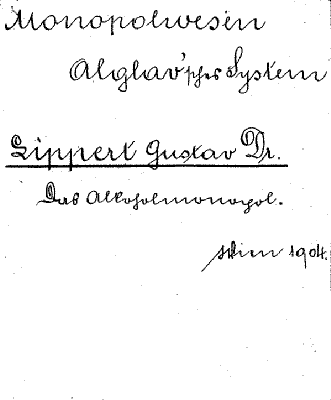 Monopolwesen
Alglav'sches System
Lippert Gustav Dr.
Das Alkoholmonopol.
Wien 1904.